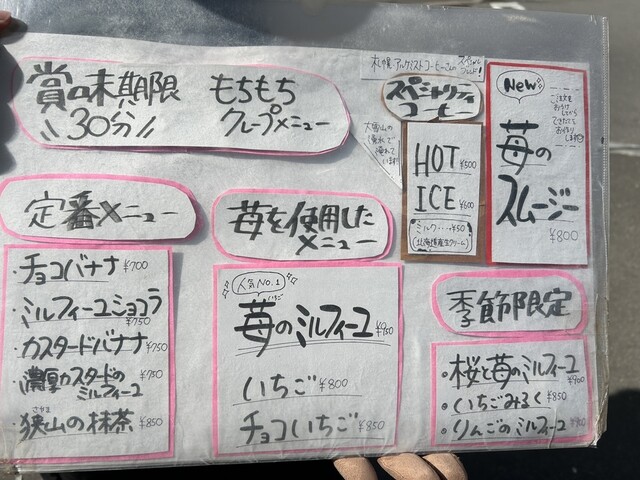 賞味期限
30分
もちもち
クレープメニュー
札幌アルケミストコーヒーさんの
スペシャルティ
コーヒー
大雪山の
湧水で
淹れて
います
HOT ¥500
ICE ¥600
ミルク…¥50
(北海道産生クリーム)
New
ご注文を
お受け
してから
できたてを
お作り
します
苺の
スムージー
¥800
定番メニュー
・チョコバナナ ¥700
・ミルフィーユショコラ
¥750
・カスタードバナナ ¥750
・濃厚カスタードの
ミルフィーユ ¥750
さやま
・狭山の抹茶 ¥850
苺を使用した
メニュー
人気No.1
いちご
苺のミルフィーユ ¥950
いちご ¥800
チョコいちご ¥850
季節限定
・桜と苺のミルフィーユ
¥900
・いちごみるく ¥850
・りんごのミルフィーユ